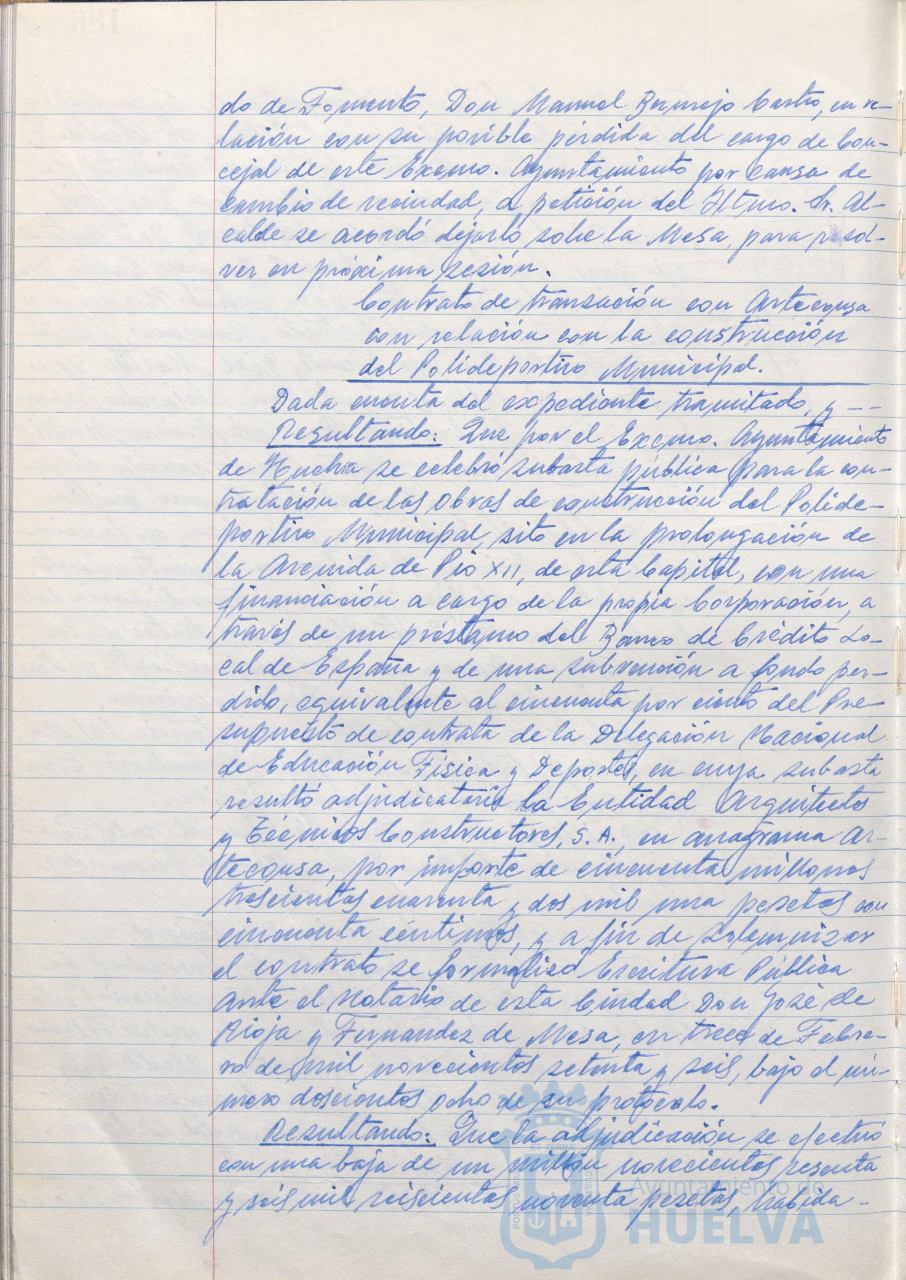 do de Fomento, Don Manuel Bermejo Castro, en re-
lación con su posible pérdida del cargo de Con-
cejal de este Excmo. Ayuntamiento por causa de
cambio de vecindad, a petición del Iltmo. Sr. Al-
calde se acordó dejarlo sobre la Mesa para resol-
ver en próxima sesión.
Contrato de transación con Artecousa
con relación con la construcción
del Polideportivo Municipal.
Dada cuenta del expediente tramitado, y ---
Resultando: Que por el Excmo. Ayuntamiento
de Huelva se celebró subasta pública para la con-
tratación de las obras de construcción del Polide-
portivo Municipal, sito en la prolongación de
la Avenida de Pío XII, de esta Capital, con una
financiación a cargo de la propia Corporación, a
través de un préstamo del Banco de Crédito Lo-
cal de España y de una subvención a fondo per-
dido, equivalente al cincuenta por ciento del Pre-
supuesto de contrata de la Delegación Nacional
de Educación Física y Deportes, en cuya subasta
resultó adjudicataria la Entidad Arquitectos
y Técnicos Constructores, S.A., en anagrama Ar-
tecousa, por importe de cincuenta millones
trescientas cuarenta y dos mil una pesetas con
cincuenta céntimos, y a fin de solemnizar
el contrato se formalizó Escritura Pública
ante el Notario de esta Ciudad Don José de
Rioja y Fernandez de Mesa, en trece de Febre-
ro de mil novecientos setenta y seis, bajo el nú-
mero doscientos ocho de su protocolo.
Resultando: Que la adjudicación se efectuó
con una baja de un millón novecientas sesenta
y seis mil seiscientas noventa pesetas, habida-
Ayuntamiento de
HUELVA